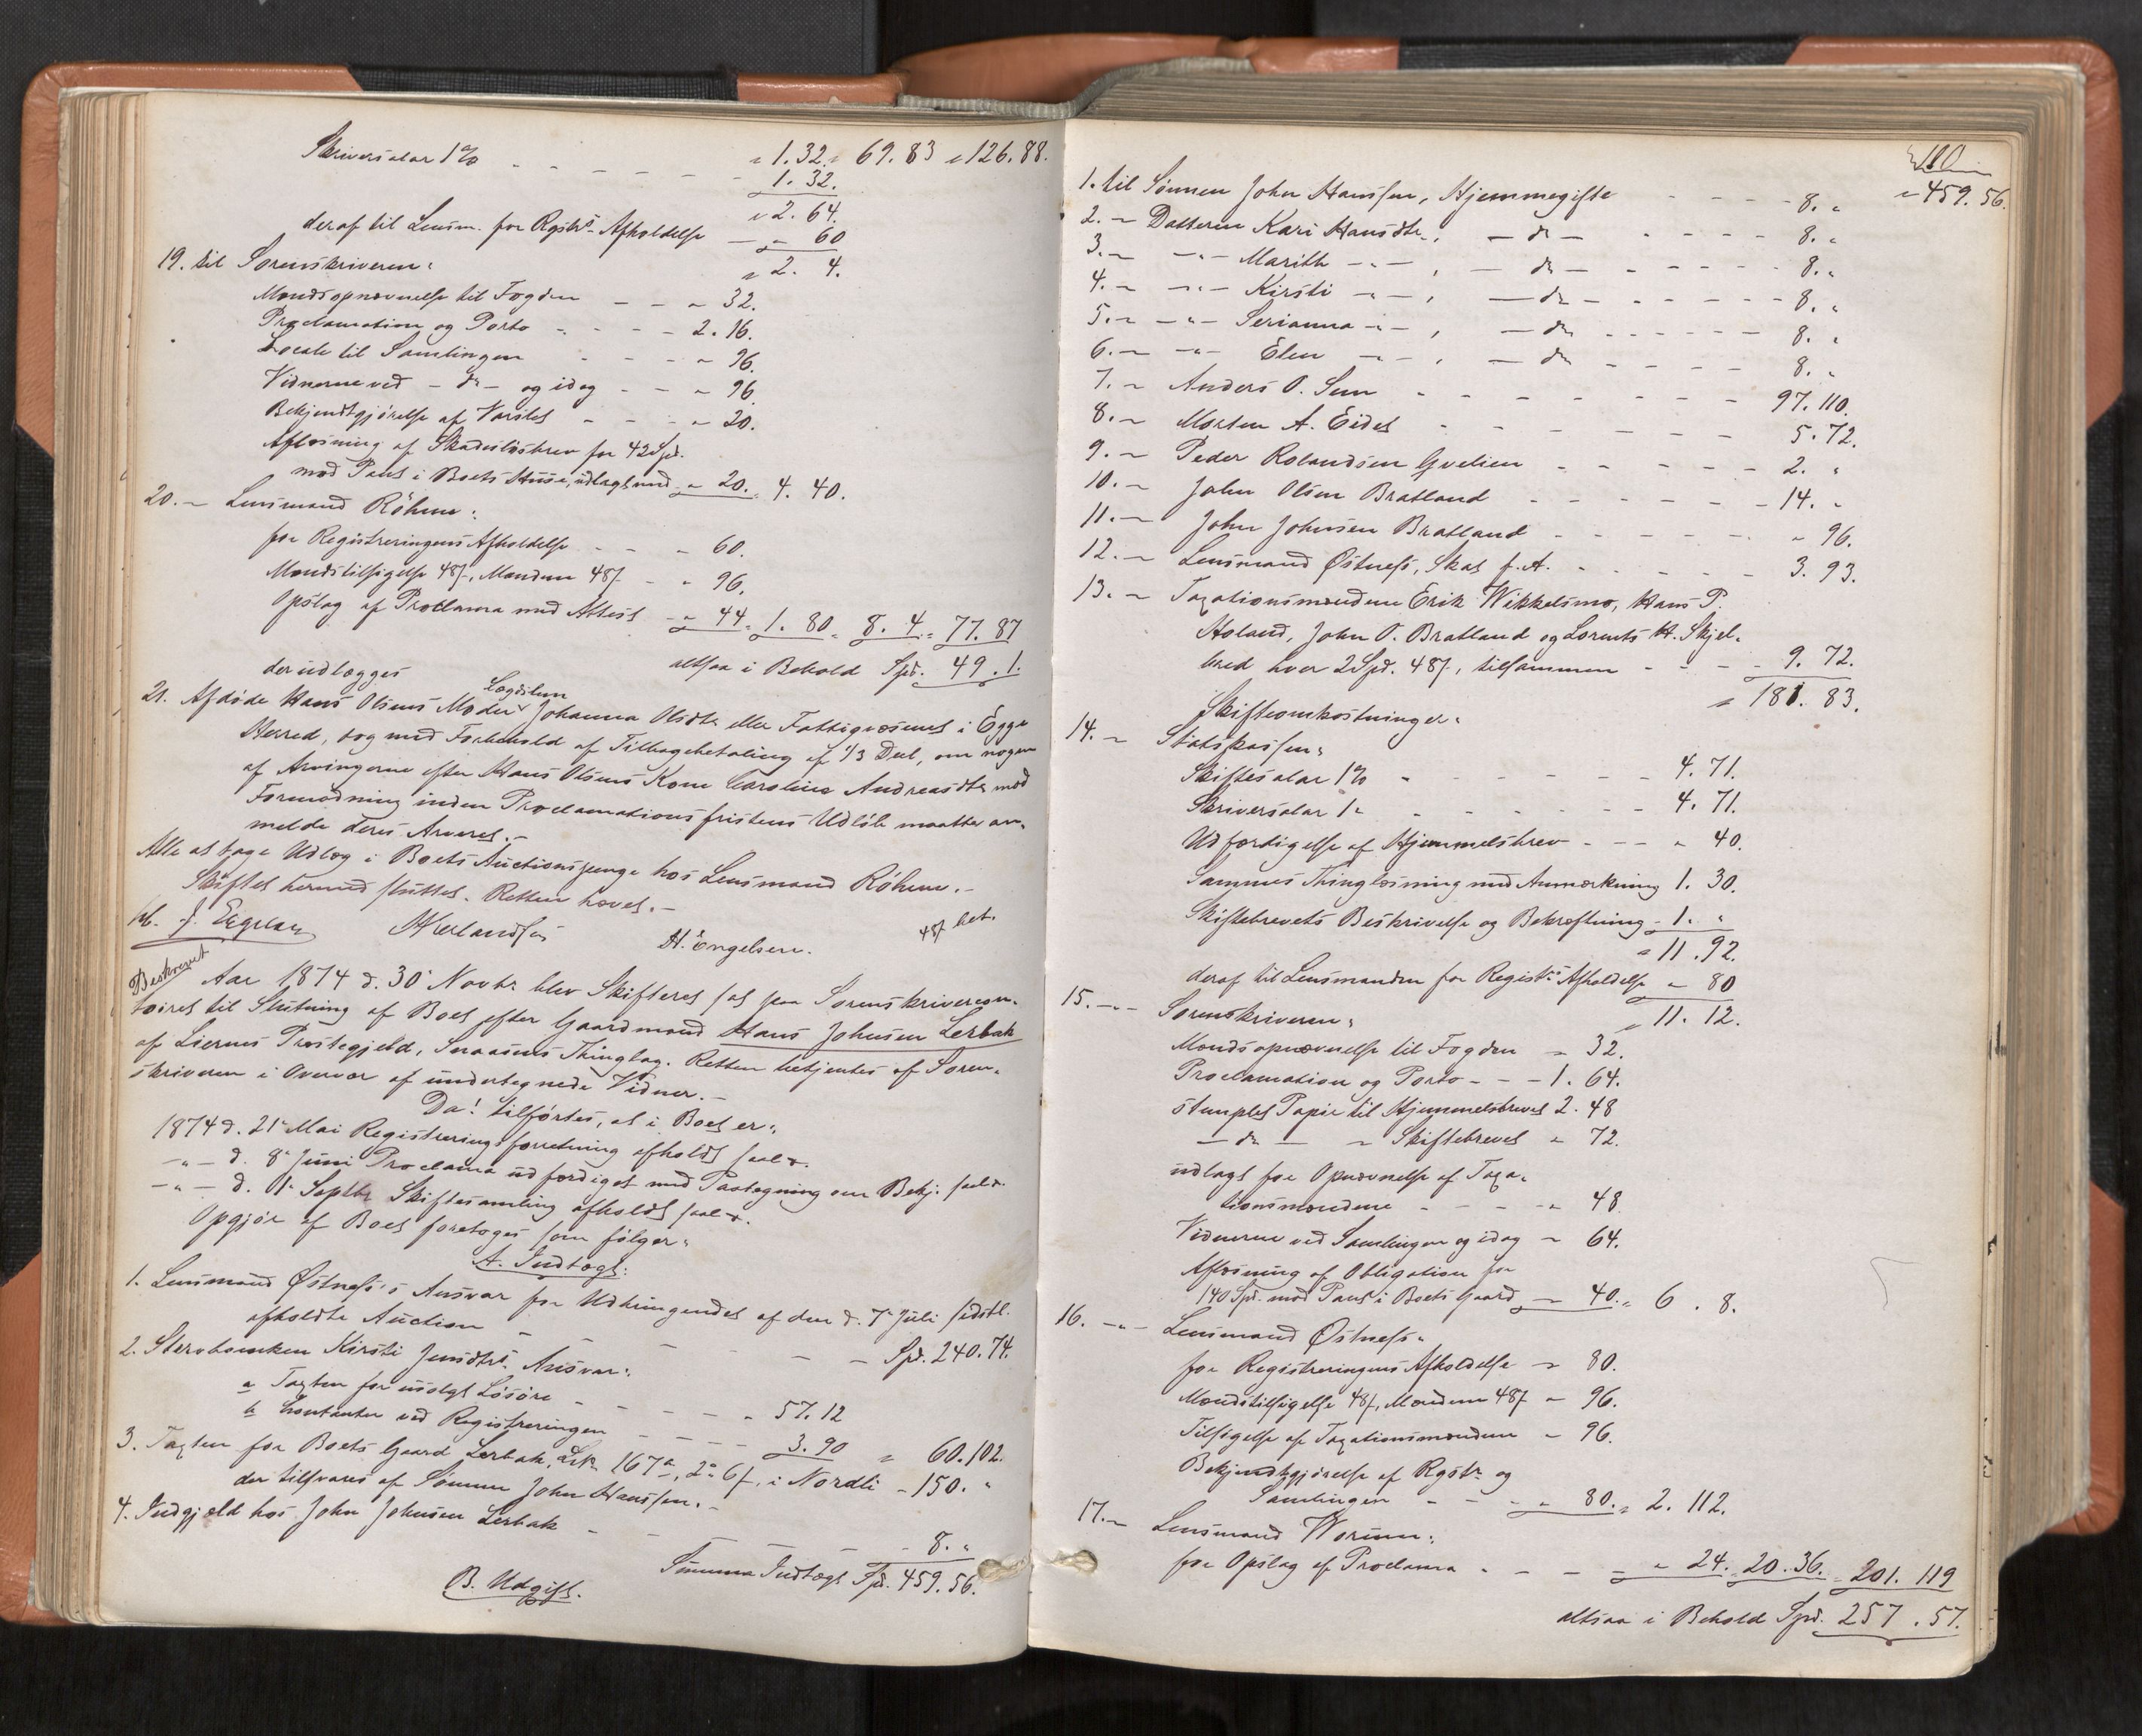 Skriversalar 1% - - - - - - " 1.32. " 69.83 " 126.88.
1. 32.
" 2. 64.
deraf til Lensm. for Rgstrs Afholdelse - " 60
" 2. 4.
19. til Sorenskriveren:
Mændsopnævnelse til Fogden - - " 32.
Proclamation og Porto - - - - 2. 16.
Locale til Samlingen - - - " 96.
Vidnerne ved - do - og idag - - " 96.
Bekjendtgjørelse af Varslet - - - " 20.
Aflæsning af Skadesløsbrev for 42 Spd.
med Pant i Boets Huse, udlagt med " 20. " 4. 40.
20. - Lensmand Röhme:
for Registreringens Afholdelse - - - 60.
Mændstilsigelse 48 f, Mændene 48 f - " 96.
Opslag af Proclama med Attest - " 44 " 1. 80 " 8. 4 " 77. 87
altsaa i Behold Spd. 49. 1.
der udlægges
21. Afdøde Hans Olsens Moder Lægdslem Johanna Olsdtr eller Fattigvæsenet i Egge
Herred, dog med Forbehold af Tilbagebetaling af 1/3 Deel, om nogen
af Arvingerne efter Hans Olsens Kone Caroline Andreasdtr mod
Formodning inden Proclamationsfristens Udløb maatte an-
melde deres Arveret. -
Alle at tage Udlæg i Boets Auctionspenge hos Lensmand Röhme. -
Skiftet hermed sluttet. Retten hævet. -
H. Engelsen.
48 f bet.
Beskrevet
Aar 1874 d. 30' Novbr blev Skifteret sat paa Sorenskrivercon-
toiret til Slutning af Boet efter Gaardmand Hans Johnsen Lerbak
af Liernes Præstegjeld, Snaasens Thinglag. Retten betjentes af Soren-
skriveren i Overvær af undertegnede Vidner. -
Da! tilførtes, at i Boet er:
1874 d. 21' Mai Registreringsforretning afholdt saal.
- " - d. 8' Juni Proclama udfærdiget med Paategning om Bekj. saal.
- " - d. 1' Septbr Skiftesamling afholdt saal.
Opgjør af Boet foretoges som følger:
A. Indtægt:
1. Lensmand Østness's Ansvar for Udbringendet af den d. 7' Juli sidstl.
afholdte Auction - - - - - - Spd. 240.74.
2. Stervboenken Kirsti Jensdtrs Ansvar:
a Taxten for usolgt Løsøre - - - - - " 57.12
b Contanter ved Registreringen - - - - 3.90 " 60.102.
3. Taxten for Boets Gaard Lerbak, Lsk 167a, 2 " 6 f, i Nordli - 150. "
der tilsvares af Sønnen John Hanssen. -
4. Indgjæld hos John Johnsen Lerbak - - - - - 8. "
Summa Indtægt Spd. 459.56.
B. Udgift.
110
" 459. 56.
1. til Sønnen John Hanssen, Hjemmegifte - - - - 8. "
2. - Datteren Kari Hansdtr, - do - - - - - 8. "
3. - - " - Marith - " - , - do - - - - - - 8. "
4. - - " - Kirsti - " - , - do - - - - - - 8. "
5. - - " - Serianna - " - , - do - - - - - 8. "
6. - - " - Elen - " - , - do - - - - - 8. "
7. - Anders O. Sem - - - - - - - 97. 110.
8. - Morten A. Eidet - - - - - - 5. 72.
9. - Peder Rolandsen Gvelien - - - - - 2. "
10. - John Olsen Bratland - - - - - - 14. "
11. - John Johnsen Bratland - - - - - " 96.
12. - Lensmand Østness, Skat f. A. - - - - - 3. 93.
13. - Taxationsmændene Erik Wikkelsmo, Hans P.
Holand, John O. Bratland og Lorents H. Skjel-
bred hver 2 Spd. 48 f, tilsammen - - - - 9. 72.
" 181. 83.
Skifteomkostninger:
14. - Statskassen:
Skiftesalar 1% - - - - - - 4. 71.
Skriversalar 1 " - - - - - - 4. 71.
Udfærdigelse af Hjemmelsbrev - - - " 40.
Sammes Thinglæsning med Anmærkning 1. 30.
Skiftebrevets Beskrivelse og Bekræftning - 1. "
" 11. 92.
deraf til Lensmanden for Regist's Afholdelse " 80
" 11. 12.
15. - " - Sorenskriveren:
Mændsopnævnelse til Fogden " 32.
Proclamation og Porto - - - 1. 64.
stemplet Papir til Hjemmelsbrevet 2. 48
- do - " Skiftebrevet " 72.
udlagt for Opnævnelse af Taxa-
tionsmændene - - - - " 48.
Vidnerne ved Samlingen og idag - 64.
Aflæsning af Obligation for
140 Spd. med Pant i Boets Gaard - 40. " 6. 8.
16. - " - Lensmand Østness:
for Registreringens Afholdelse " 80.
Mændstilsigelse 48 f, Mændene 48 f - 96.
Tilsigelse af Taxationsmændene - 96.
Bekjendtgjørelse af Rgstr. og
Samlingen - - - " 80. " 2. 112.
17. - Lensmand Wormn:
for Opslag af Proclama - - - - " 24. " 20. 36. " 201. 119
altsaa i Behold Spd. 257. 57.